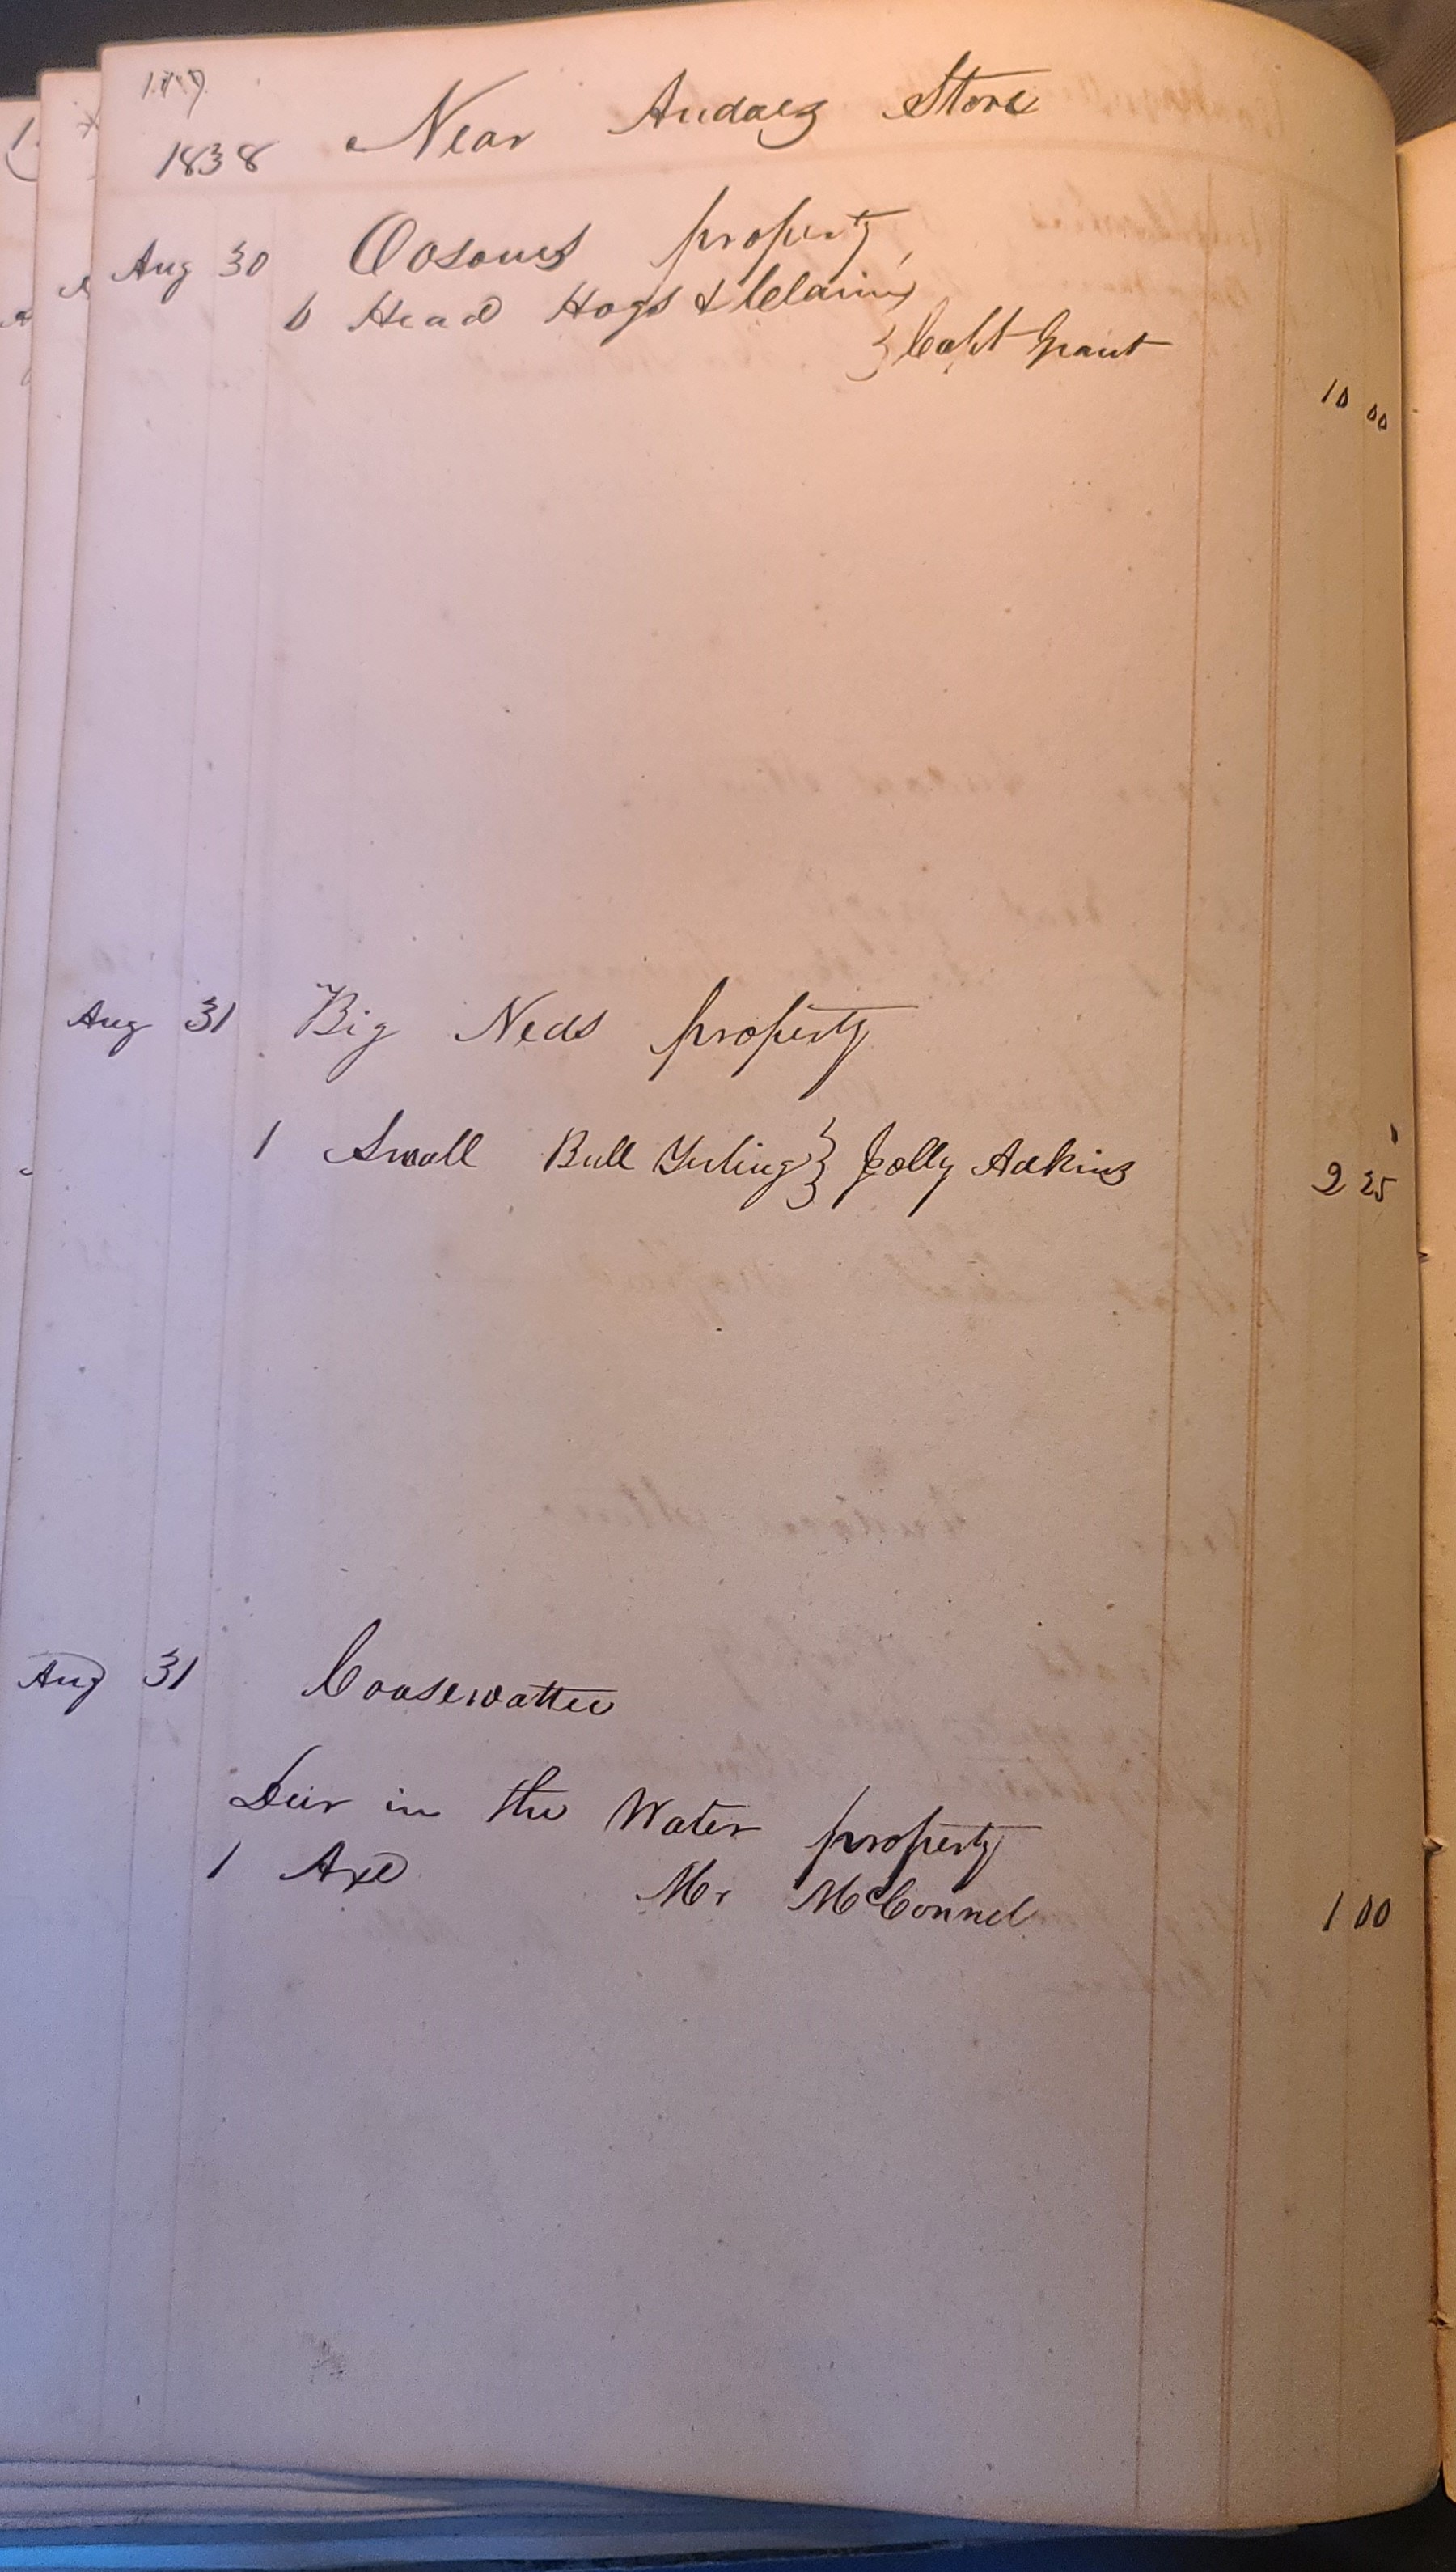 1838 Near Audaes Store
Aug 30 Oosoues property
6 Head Hogs & Claim
} Capt Grant
10 00
Aug 31 Big Neds property
1 Small Bull Yerling } Jolly Adkins 2 25
Aug 31 Coosewattee
Deer in the Water property
1 Axe Mr McConnel 1 00